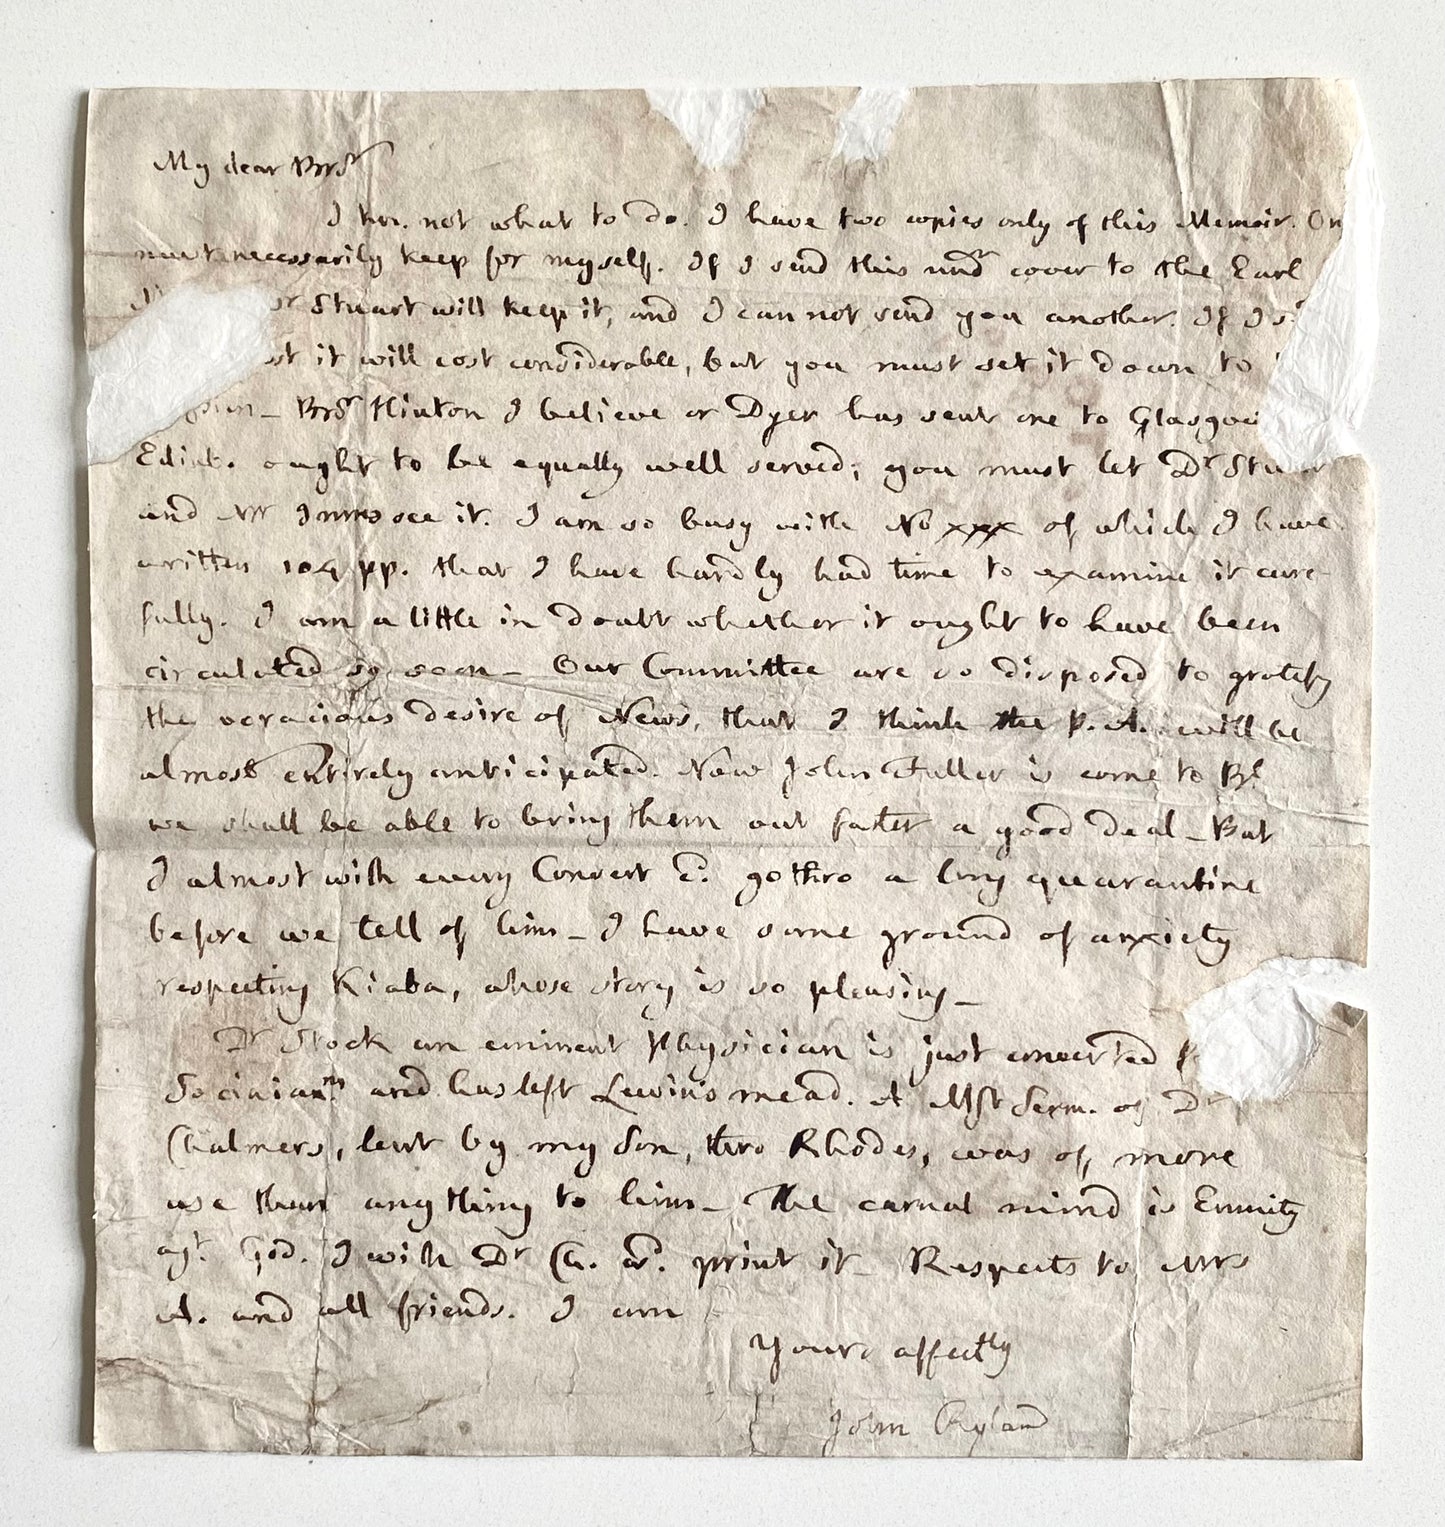 My dear Brr
I kn. not what to do. I have two copies only of this Memoir. On
must necessarily keep for myself. If I send this undr cover to the Earl
Stuart will keep it, and I can not send you another. If I s
st it will cost considerable, but you must set it down to
Brr Hinton I believe or Dyer has sent one to Glasgow
Edinb. ought to be equally well served; you must let Dr Stuart
and Mr Innes see it. I am so busy with No xxx of which I have
written 104 pp. that I have hardly had time to examine it care-
fully. I am a little in doubt whether it ought to have been
circulated so soon _ Our Committee are so disposed to gratify
the voracious desire of News, that I think the P. A. will be
almost entirely anticipated. Now John Fuller is come to Bl
we shall be able to bring them out faster a good deal _ But
I almost wish every Convert cd. go thro a long quarantine
before we tell of him _ I have some ground of anxiety
respecting Kiaba, whose story is so pleasing _
Dr Stock an eminent Physician is just converted
Socinianm and has left Lewins mead. A MSt Serm. of Dr
Chalmers, lent by my Son, thro Rhodes, was of more
use than any thing to him _ The carnal mind is Enmity
agt. God. I wish Dr Ch. wd. print it _ Respects to Mrs
A. and all friends. I am
Yours affectly
John Ryland